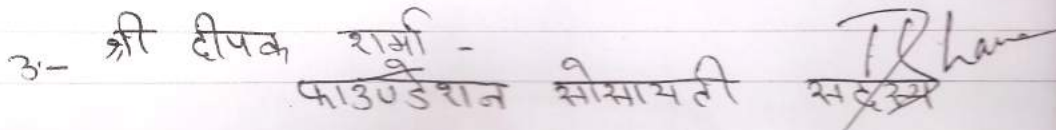 3:- श्री दीपक शर्मा -
फाउण्डेशन सोसायती सदस्य